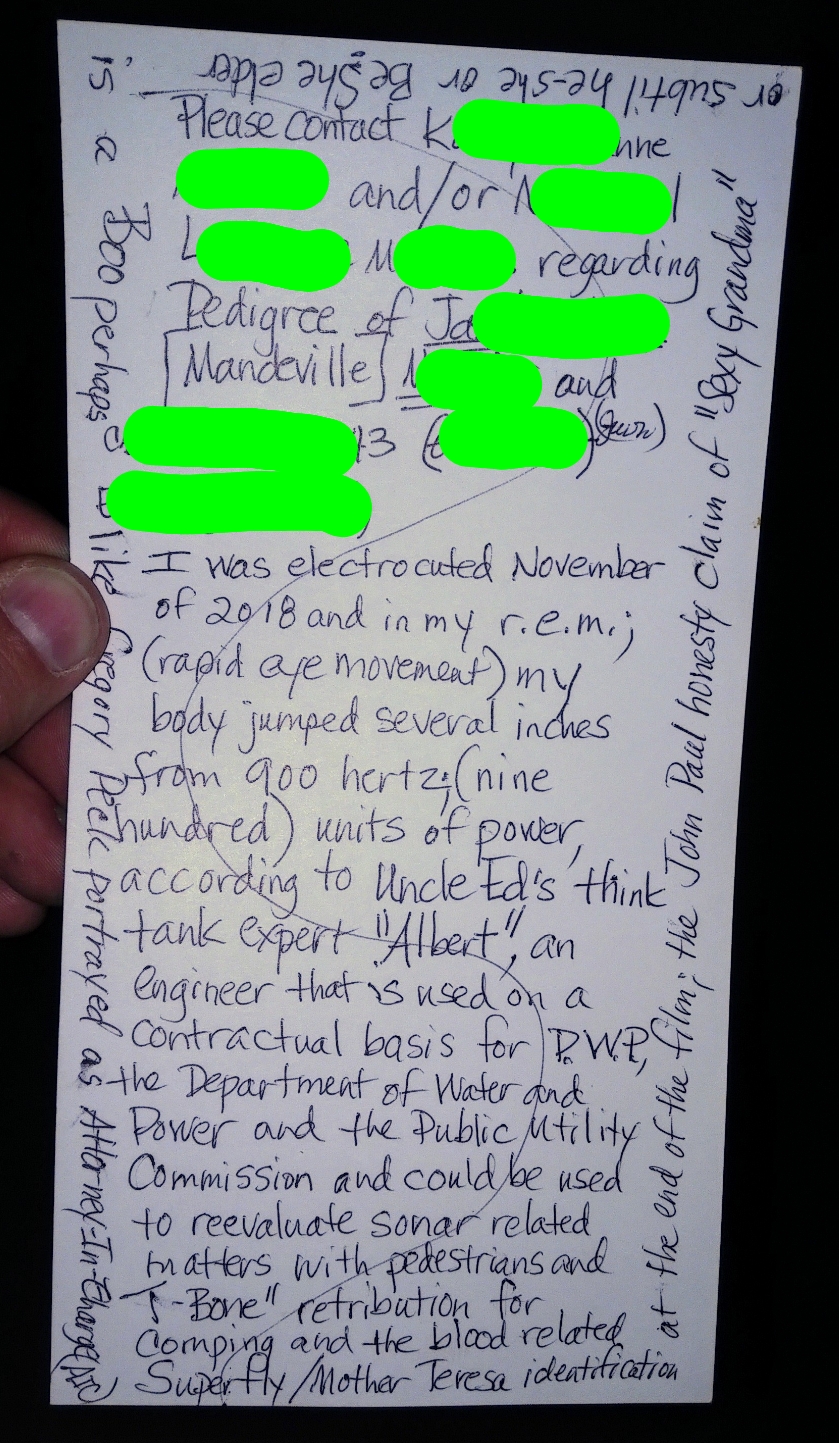 Please contact K nne
and/or
L M regarding
Pedigree of Ja
[Mandeville] and
13
I was electrocuted November
of 2018 and in my r.e.m.;
(rapid eye movement) my
body jumped several inches
from 900 hertz;(nine
hundred) units of power,
according to Uncle Ed's think
tank expert "Albert", an
engineer that is used on a
contractual basis for D.W.P,
the Department of Water and
Power and the Public Utility
Commission and could be used
to reevaluate sonar related
matters with pedestrians and
T-Bone" retribution for
comping and the blood related
Superfly/Mother Teresa identification
at the end of the film; the John Paul honesty claim of "Sexy Grandma"
or subtil he-she or Be:She elder
is a Boo perhaps like Gregory Peck portrayed as Attorney-In-Charge